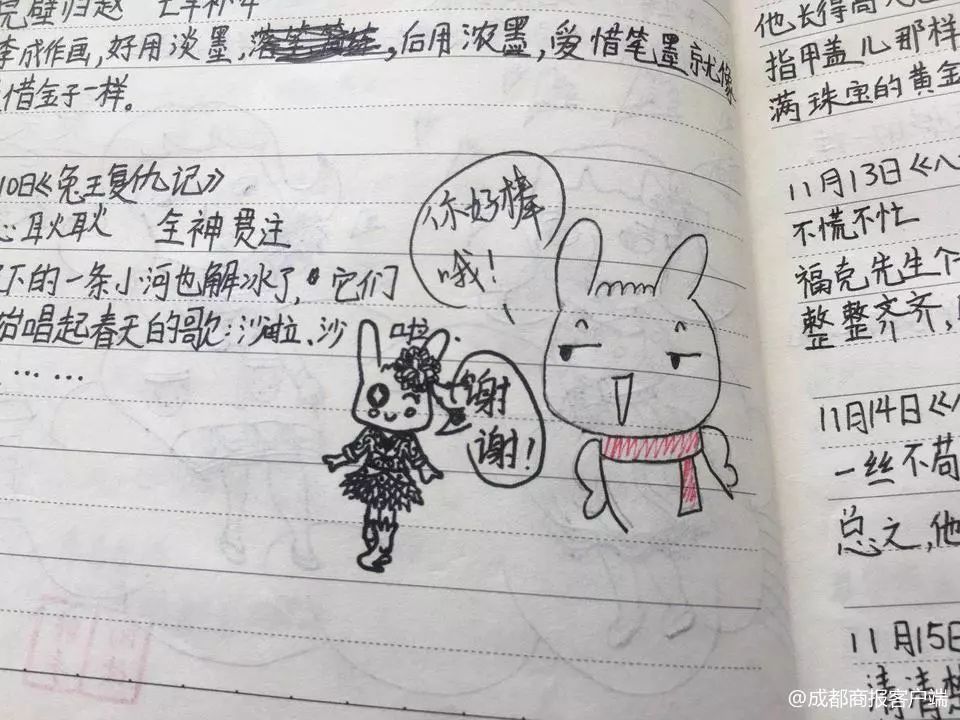 完璧归赵 七零八
李成作画,好用淡墨,后用浓墨,爱惜笔墨就像
惜金子一样。
10日《兔王复仇记》
心耿耿 全神贯注
下的一条小河也解冰了,它们
始唱起春天的歌:沙啦、沙啦.
……
你好棒
哦!
谢
谢!
他长得高大
指甲盖儿那样
满珠宝的黄金
11月13日《八
不慌不忙
福克先生个
整整齐齐,
11月14日《
一丝不苟
总之,他
11月15日
清清楚
@成都商报客户端